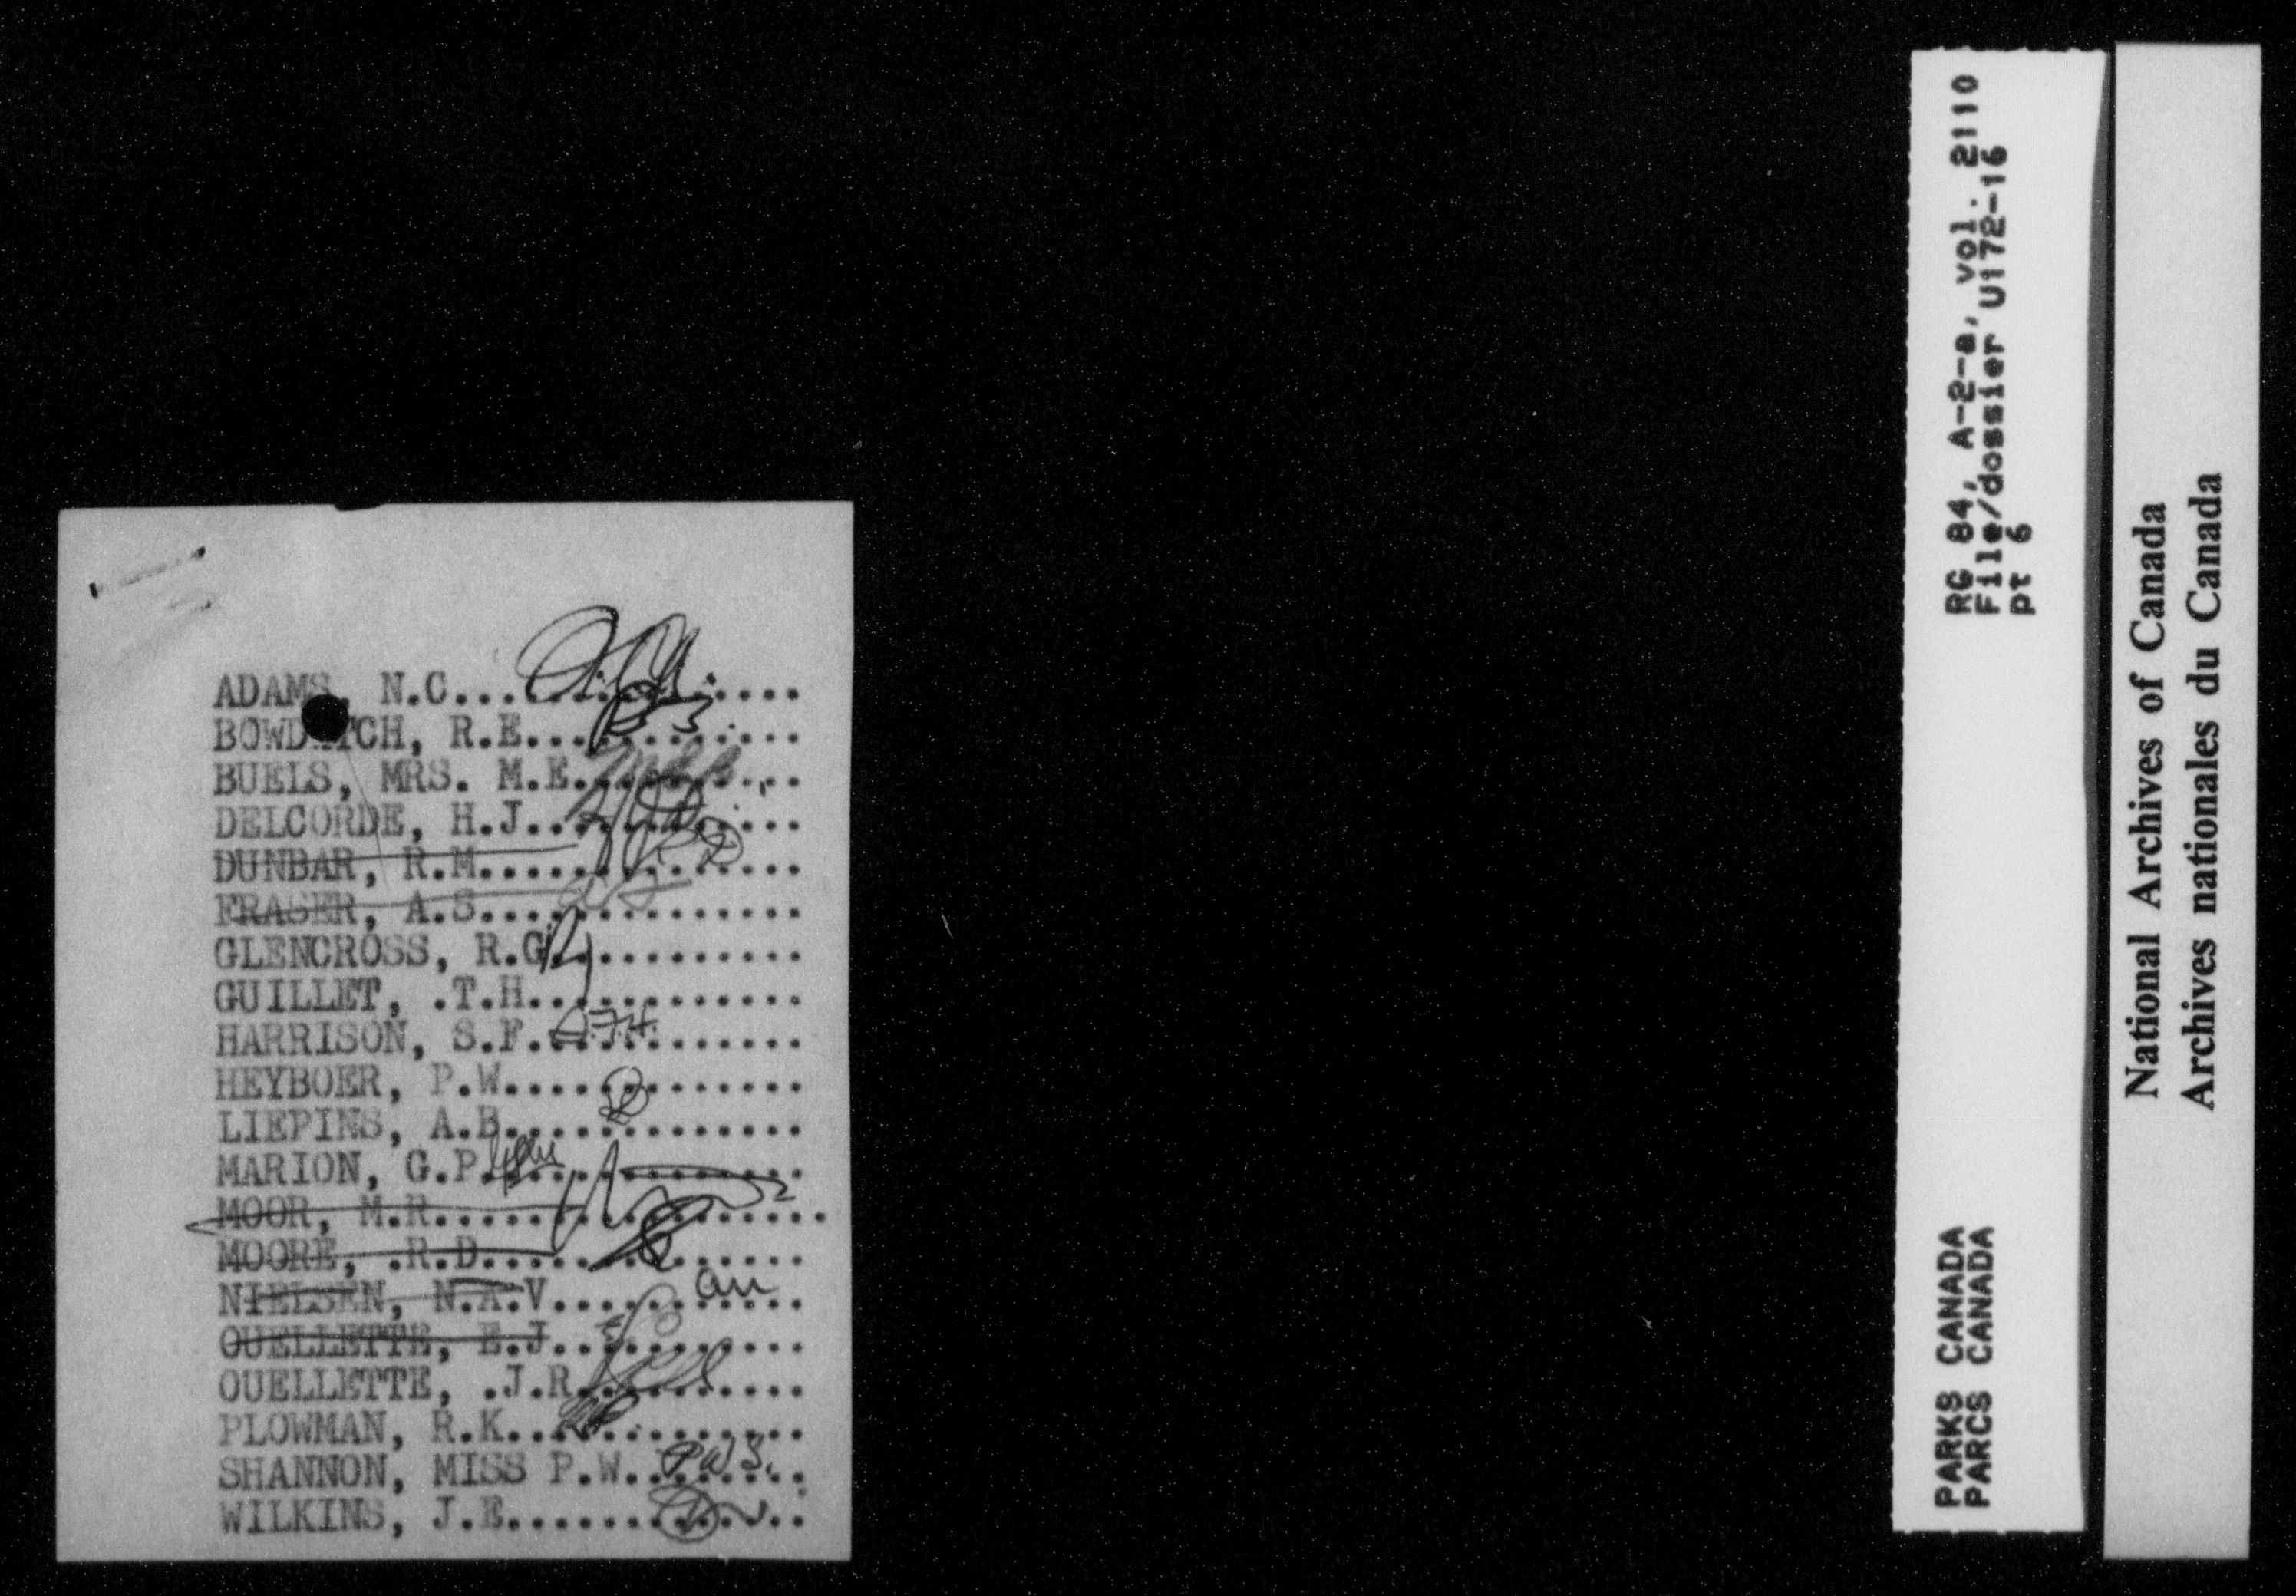 ADAMS, N.C...............
BOWD TCH, R.E............
BUELS, MRS. M.E..........
DELCORDE, H.J............
DUNBAR, R.M..............
FRASER, A.S..............
GLENCROSS, R.G...........
GUILLET, .T.H............
HARRISON, S.F. S.F.H.
HEYBOER, P.W.............
LIEPINS, A.B.............
MARION, G.P..............
MOOR, M.R................
MOORE, .R.D..............
NIELSEN, N.A.V...........
OUELLETTE, E.J...........
OUELLETTE, .J.R..........
PLOWMAN, R.K.............
SHANNON, MISS P.W. PWS.
WILKINS, J.E.............
RG 84, A-2-a, vol. 2110
File/dossier U172-16
pt 6
PARKS CANADA
PARCS CANADA
National Archives of Canada
Archives nationales du Canada